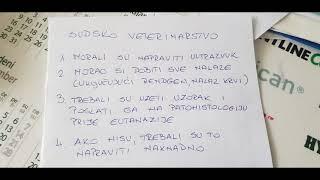 SUDSKO VETERINARSTVO
1 MORALI SU NAPRAVITI ULTRAZVUK
2 MORAO SI DOBITI SVE NALAZE
(UKLJUČUJUĆI RENDGEN, NALAZ KRVI)
3. TREBALI SU UZETI UZORAK I
POSLATI GA NA PATOHISTOLOGIJU
PRIJE EUTANAZIJE
4. AKO NISU, TREBALI SU TO
NAPRAVITI NAKNADNO